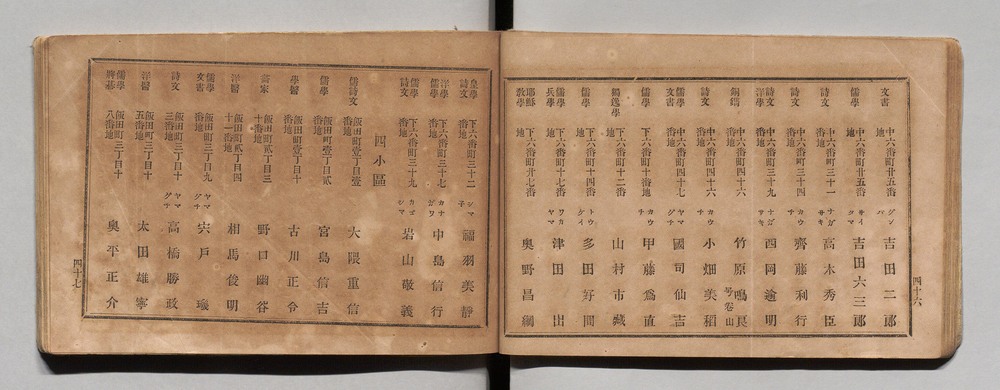 文書 中六番町廿五番地 グンバ 吉田二郎
儒學 中六番町廿五番地 サイタマ 吉田六三郎
詩文 中六番町三十一番地 ナガサキ 高木秀臣
詩文 中六番町三十四番地 カウチ 齊藤利行
詩文 洋學 中六番町三十九番地 ナガサキ 西岡逾明
銅鐫 中六番町四十六番地 竹原鳴 号卷山
詩文 中六番町四十六番地 カウチ 小畑美稻
儒學 文書 中六番町四十七番地 ヤマグチ 國司仙吉
儒學 下六番町十番地 カウチ 甲藤爲直
獨逸學 下六番町十二番地 山村市藏
儒學 下六番町十四番地 トウケイ 多田好問
儒學 兵學 下六番町十七番地 ワカヤマ 津田出
耶蘇教學 下六番町廿七番地 奥野昌綱
四十六
皇學 詩文 下六番町三十二番地 シマ子 福羽美靜
洋學 儒學 下六番町三十七番地 カナガワ 中島信行
儒學 詩文 下六番町三十九番地 カゴシマ 岩山敬義
四小區
儒詩文 飯田町壹丁目壹番地 大隈重信
儒學 飯田町壹丁目貳番地 宮島信吉
學醫 飯田町壹丁目十番地 古川正令
畵家 飯田町貳丁目三十番地 野口幽谷
洋醫 飯田町貳丁目四十一番地 相馬俊明
儒學 文書 飯田町三丁目九番地 ヤマグチ 宍戸璣
詩文 飯田町三丁目十三番地 ヤマグチ 高橋勝政
洋醫 飯田町三丁目十五番地 太田雄寧
儒學 牌碁 飯田町三丁目十八番地 奥平正介
四十七